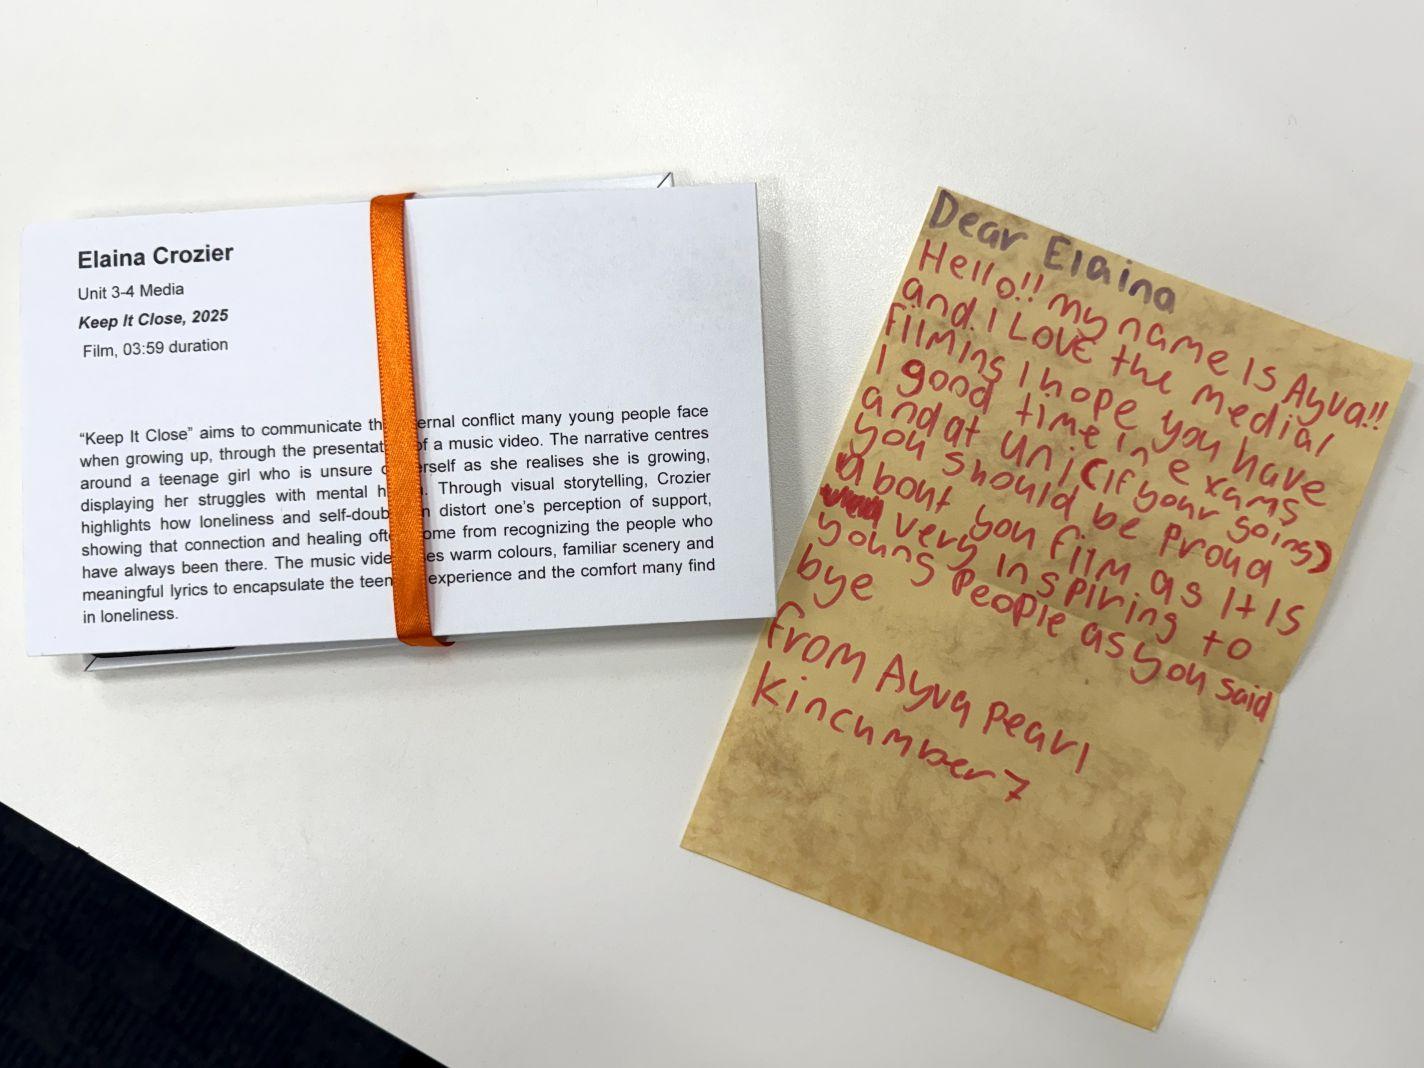 Elaina Crozier
Unit 3-4 Media
Keep It Close, 2025
Film, 03:59 duration
“Keep It Close” aims to communicate th ernal conflict many young people face
when growing up, through the presentat of a music video. The narrative centres
around a teenage girl who is unsure o erself as she realises she is growing,
displaying her struggles with mental h . Through visual storytelling, Crozier
highlights how loneliness and self-doub n distort one’s perception of support,
showing that connection and healing oft ome from recognizing the people who
have always been there. The music vide es warm colours, familiar scenery and
meaningful lyrics to encapsulate the teen experience and the comfort many find
in loneliness.
Dear Elaina
Hello!! my name is Ayva!!
and i LOVE the media/
filming I hope you have
I good time in exams
and at uni (if your going)
you should be proud
about you film as it is
very inspiring to
young people as you said
bye
from Ayva Pearl
Kincumber 7